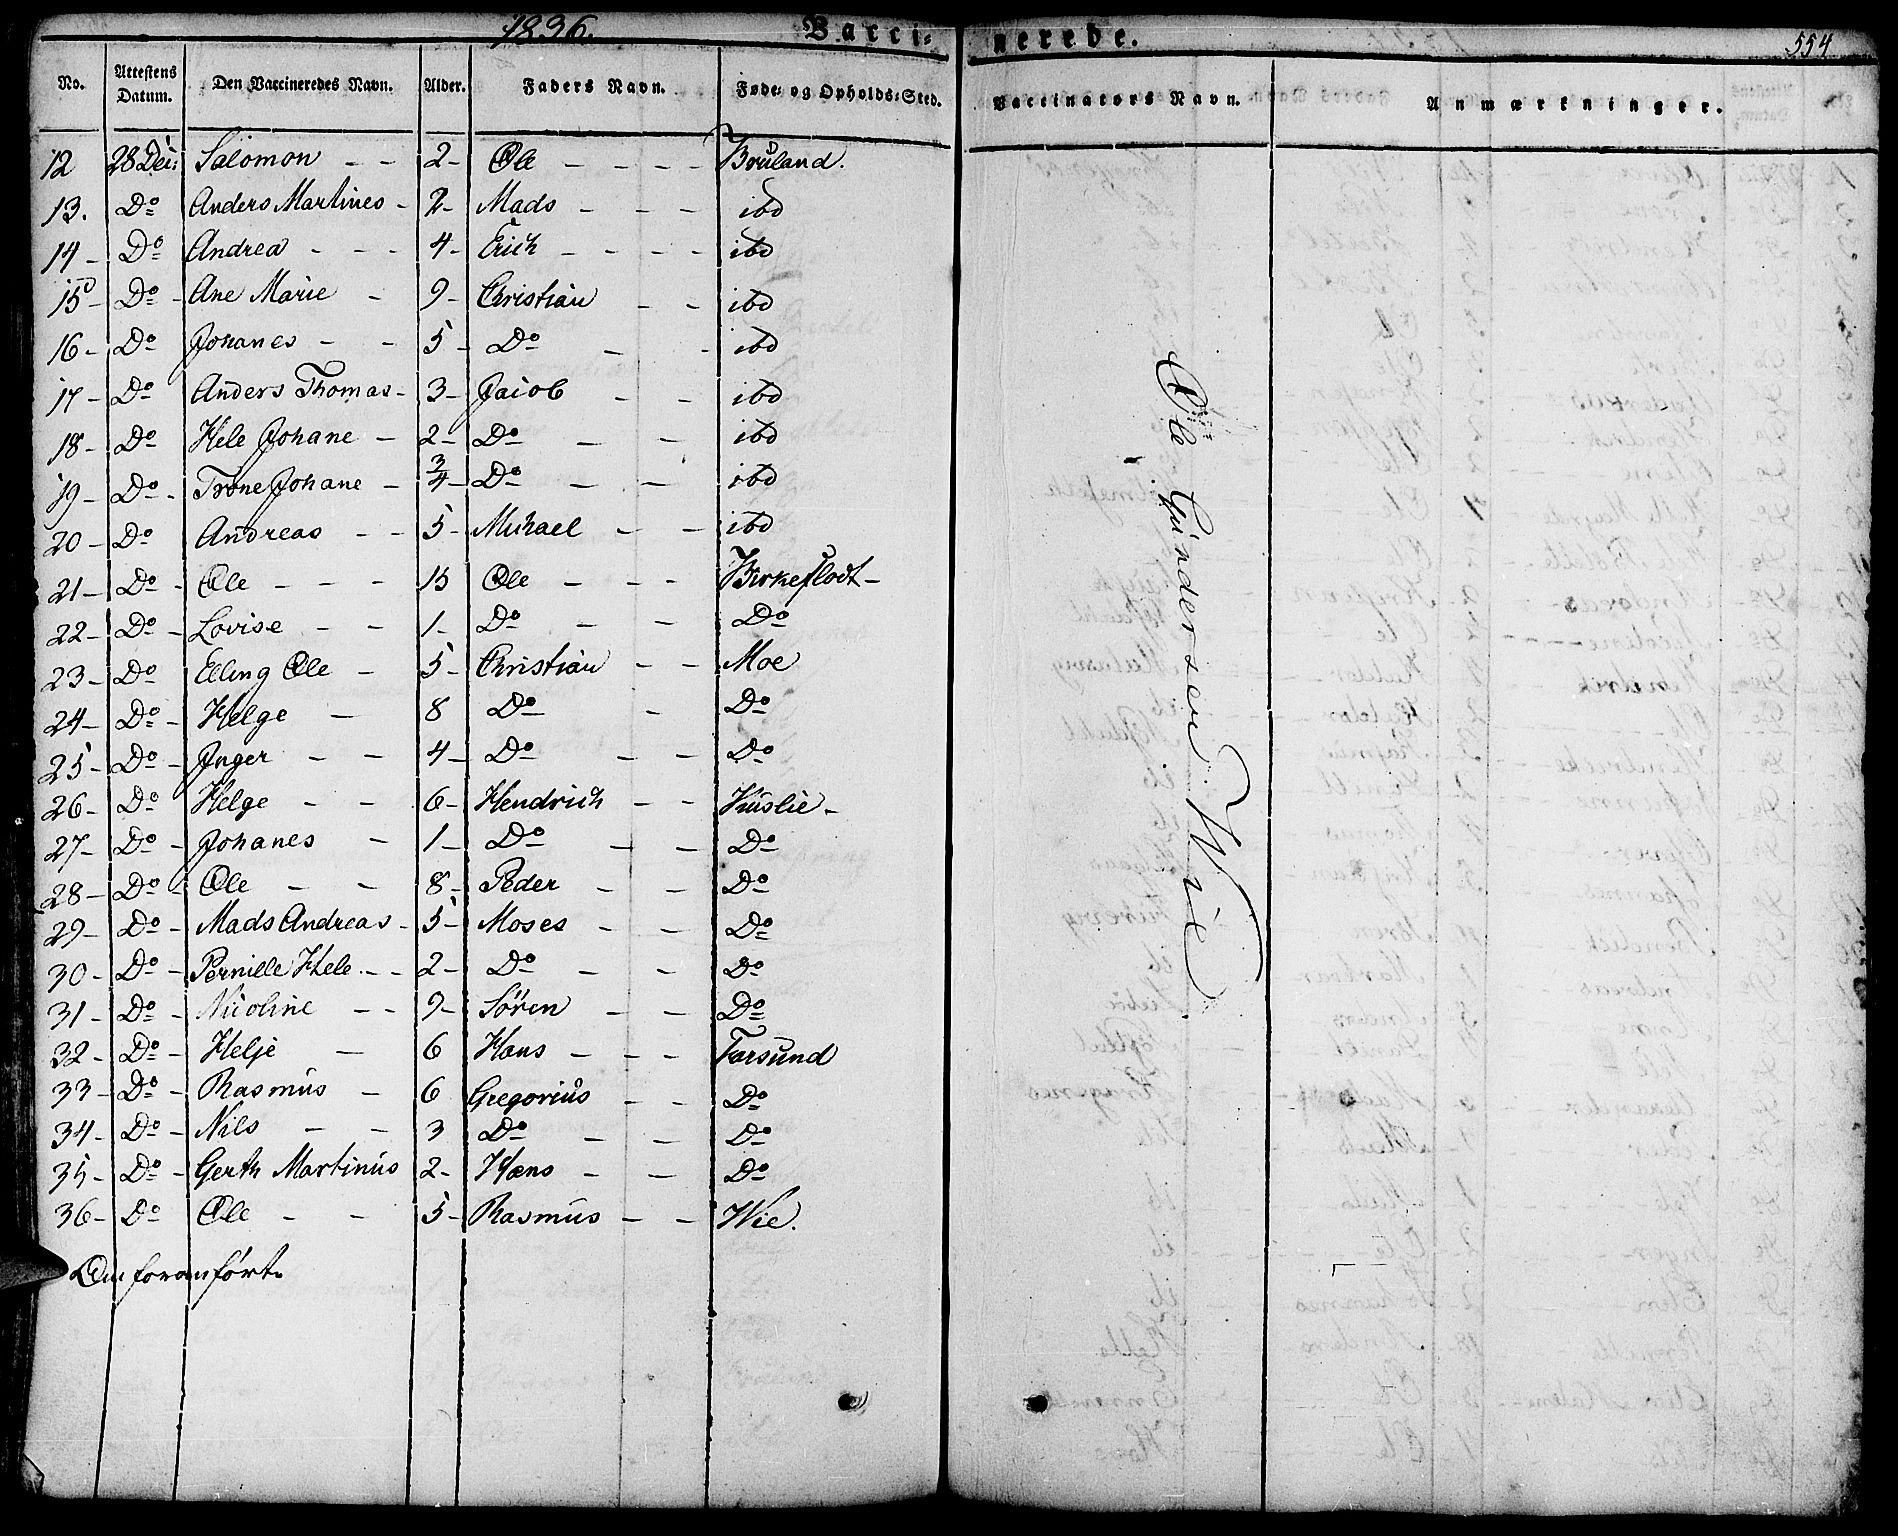 1836. Vacci= nerede. 554
No. Attestens Datum. Den Vaccineredes Navn. Alder. Faders Navn. Føde= og Opholds=Sted. Vaccinators Navn. Anmærkninger.
12 28 Dec: Salomon - - 2- Ole - - - - Bruland.
13. Do Anders Martines - 2- Mads - - - ibd
14 - Do Andrea - - - 4- Erich - - - - ibd
15 - Do - Ane Marie - 9- Christian - - ibd
16 - Do - Johanes - - 5- Do - - ibd
17 - Do Anders Thomas - 3- Jacob - - ibd
18 - Do Hele Johane - 2- Do - - ibd
19 - Do - Trone Johane - 3/4- Do - - ibd
20 - Do - Andreas - - 5- Michael - - ibd
21 - Do - Ole - - - 15 Ole - - - Birkeflodt -
22 - Do - Lovise - - 1- Do - - Do
23 - Do Elling Ole - 5- Christian - - Moe
24 - Do - Helge - 8 Do - Do
25 - Do - Inger - - 4- Do - - Do
26 - Do Helge - - 6- Hendrich - - Huslie -
27 - Do - Johanes - 1- Do - - Do
28 - Do - Ole - - 8- Peder - - Do
29 - Do - Mads Andreas - 5- Moses - - Do
30 - Do - Pernille Hele - - 2- Do - - Do
31 - Do - Nicoline - - 9- Sören - - Do
32 - Do - Helje - 6 Hans - - - Farsund
33 - Do - Rasmus - 6 Gregorius - - Do
34 - Do - Nils - - 3 Do - - Do
35 - Do - Gerth Martinus 2- Hans - - Do
36 - Do Ole - - 5- Rasmus - - Wie.
foranfört.
Ole Gundersen Wie